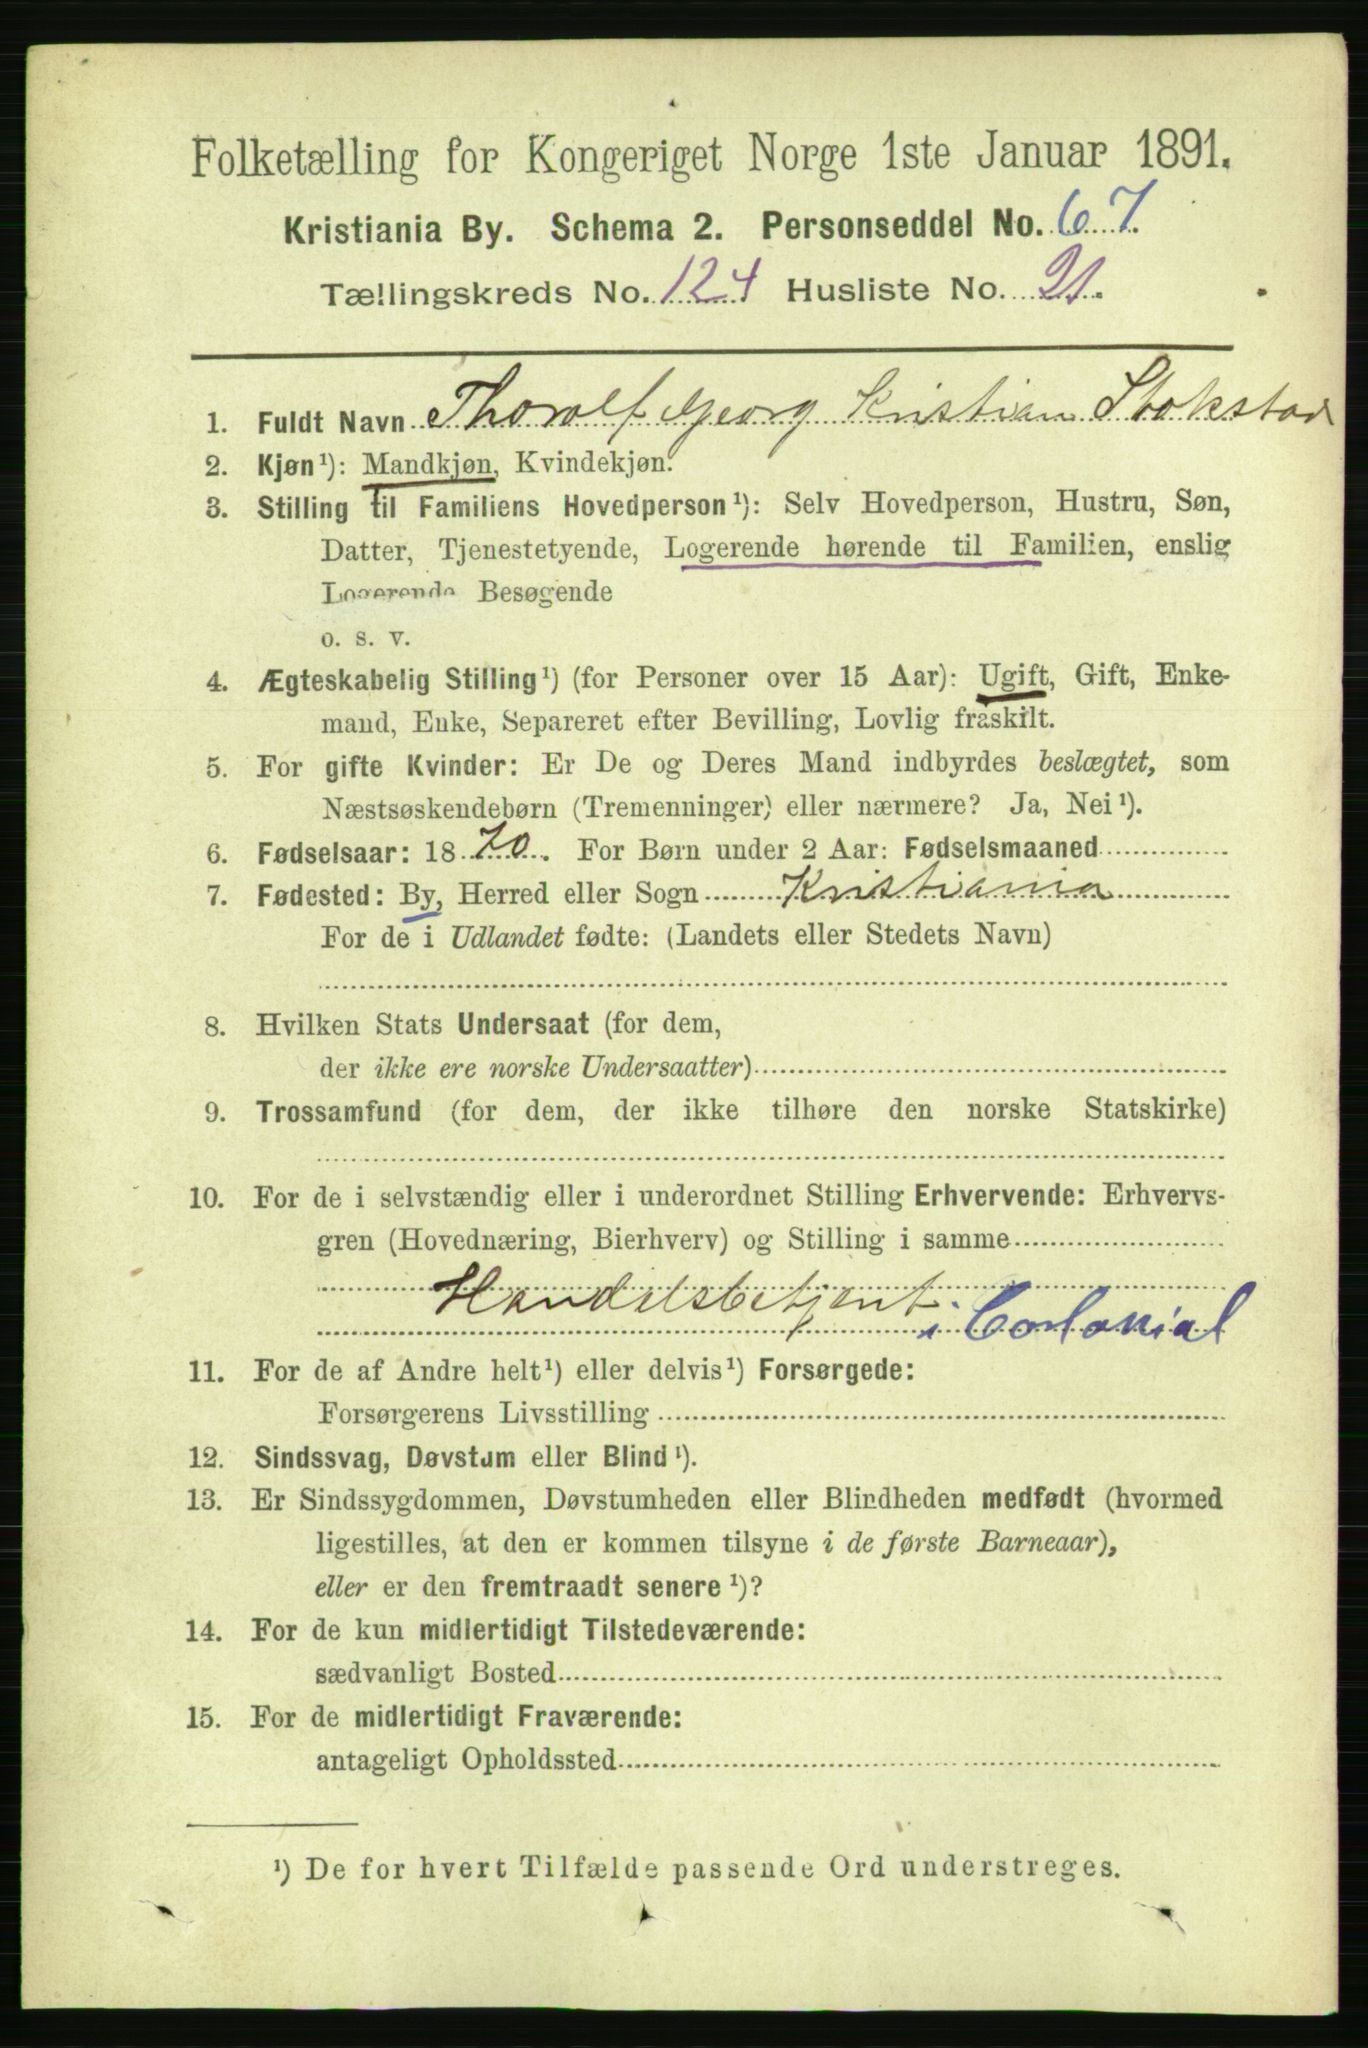 Folketælling for Kongeriget Norge 1ste Januar 1891.
Kristiania By. Schema 2. Personseddel No. 67
Tællingskreds No. 124 Husliste No. 21.
1. Fuldt Navn Thorolf Georg Kristian Stokstad
2. Kjøn¹): Mandkjøn, Kvindekjøn.
3. Stilling til Familiens Hovedperson¹): Selv Hovedperson, Hustru, Søn,
Datter, Tjenestetyende, Logerende hørende til Familien, enslig
Logerende Besøgende
o. s. v.
4. Ægteskabelig Stilling¹) (for Personer over 15 Aar): Ugift, Gift, Enke-
mand, Enke, Separeret efter Bevilling, Lovlig fraskilt.
5. For gifte Kvinder: Er De og Deres Mand indbyrdes beslægtet, som
Næstsøskendebørn (Tremenninger) eller nærmere? Ja, Nei¹).
6. Fødselsaar: 1870. For Børn under 2 Aar: Fødselsmaaned
7. Fødested: By, Herred eller Sogn Kristiania
For de i Udlandet fødte: (Landets eller Stedets Navn)
8. Hvilken Stats Undersaat (for dem,
der ikke ere norske Undersaatter)
9. Trossamfund (for dem, der ikke tilhøre den norske Statskirke)
10. For de i selvstændig eller i underordnet Stilling Erhvervende: Erhvervs-
gren (Hovednæring, Bierhverv) og Stilling i samme
Handelsbetjent i Colonial
11. For de af Andre helt¹) eller delvis¹) Forsørgede:
Forsørgerens Livsstilling
12. Sindssvag, Døvstum eller Blind¹).
13. Er Sindssygdommen, Døvstumheden eller Blindheden medfødt (hvormed
ligestilles, at den er kommen tilsyne i de første Barneaar),
eller er den fremtraadt senere¹)?
14. For de kun midlertidigt Tilstedeværende:
sædvanligt Bosted
15. For de midlertidigt Fraværende:
antageligt Opholdssted
¹) De for hvert Tilfælde passende Ord understreges.